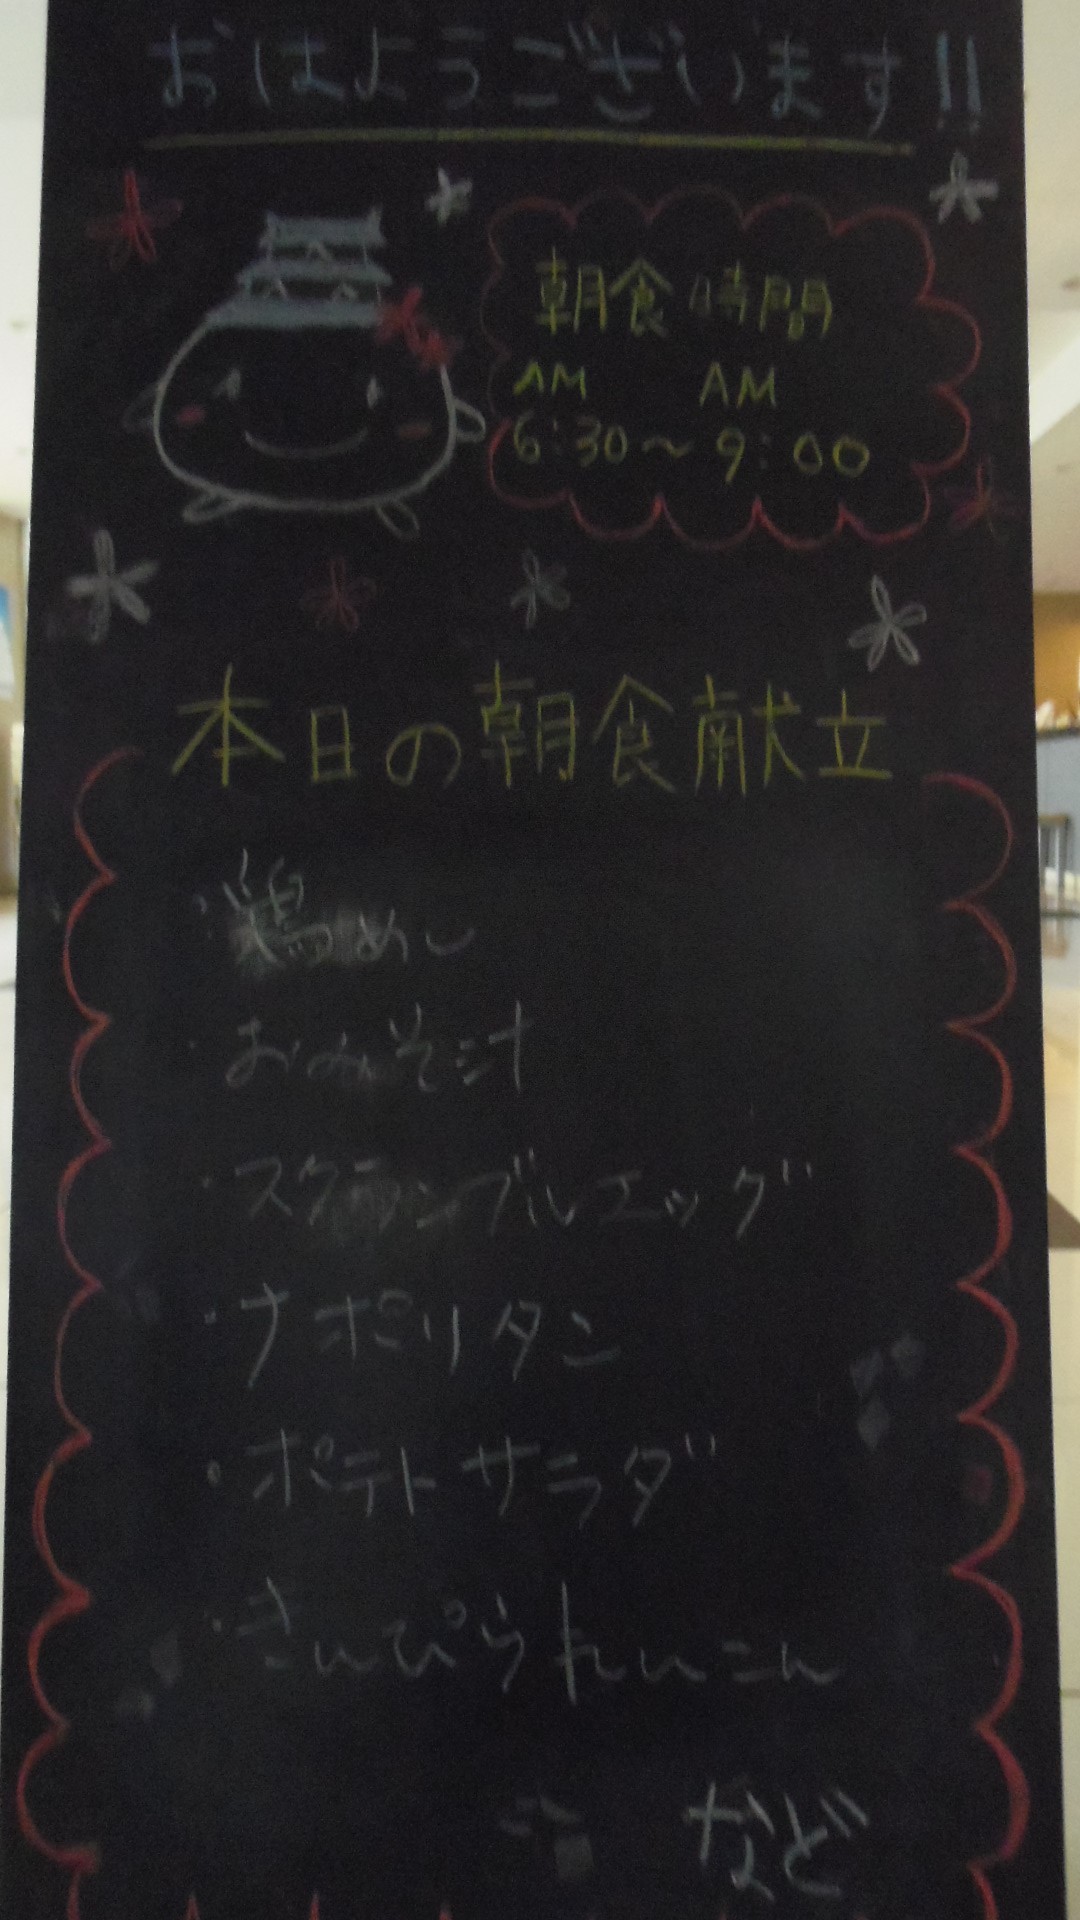 おはようございます!!
朝食時間
AM AM
6:30〜9:00
本日の朝食献立
・鶏めし
・おみそ汁
・スクランブルエッグ
・ナポリタン
・ポテトサラダ
・きんぴられんこん
など